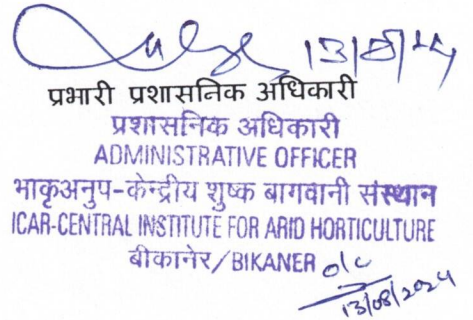 13/8/24
प्रभारी प्रशासनिक अधिकारी
प्रशासनिक अधिकारी
ADMINISTRATIVE OFFICER
भाकृअनुप-केन्द्रीय शुष्क बागवानी संस्थान
ICAR-CENTRAL INSTITUTE FOR ARID HORTICULTURE
बीकानेर/BIKANER
o/c
13/08/2024